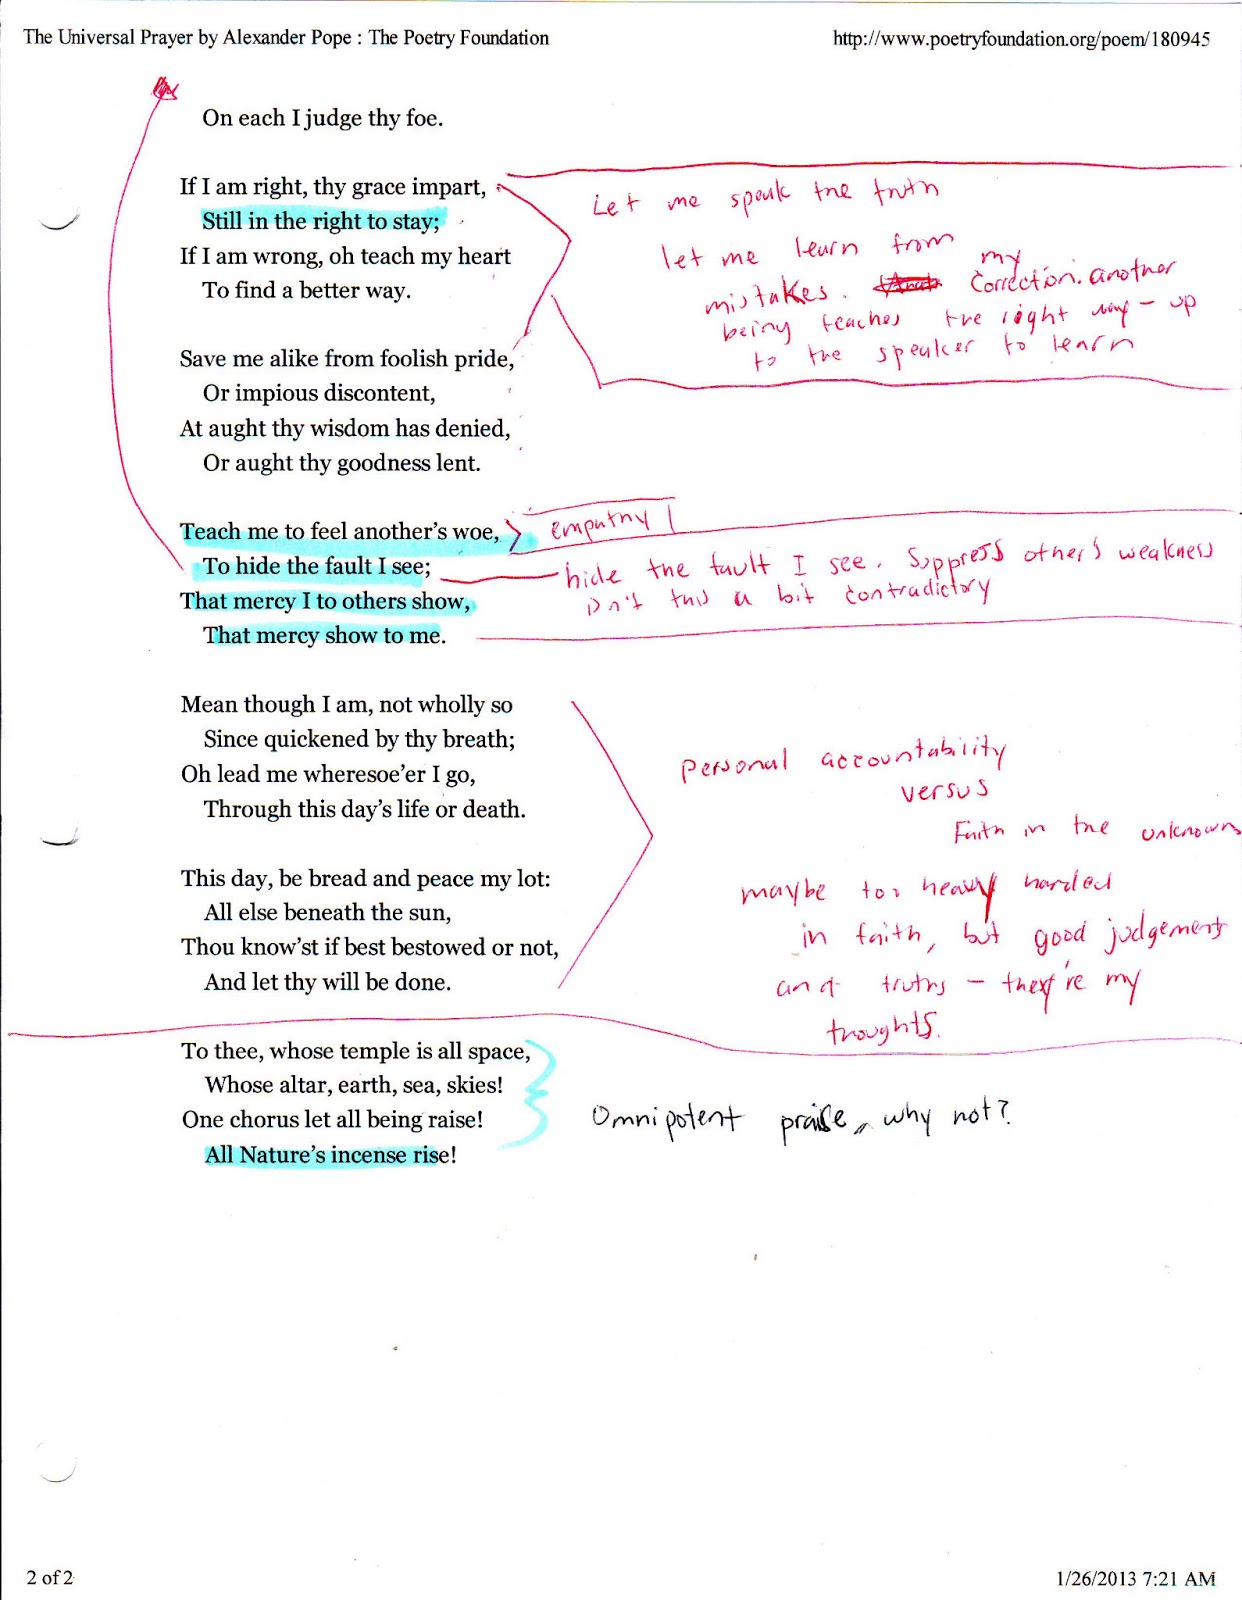 The Universal Prayer by Alexander Pope : The Poetry Foundation
http://www.poetryfoundation.org/poem/180945
On each I judge thy foe.
If I am right, thy grace impart,
Still in the right to stay;
If I am wrong, oh teach my heart
To find a better way.
Let me speak the truth
let me learn from my
mistakes. correction. another
being teaches the right way - up
to the speaker to learn
Save me alike from foolish pride,
Or impious discontent,
At aught thy wisdom has denied,
Or aught thy goodness lent.
Teach me to feel another's woe,
To hide the fault I see;
That mercy I to others show,
That mercy show to me.
empathy
hide the fault I see. Suppress other's weakness
isn't this a bit contradictory
Mean though I am, not wholly so
Since quickened by thy breath;
Oh lead me wheresoe'er I go,
Through this day's life or death.
This day, be bread and peace my lot:
All else beneath the sun,
Thou know'st if best bestowed or not,
And let thy will be done.
Personal accountability
versus
Faith in the unknown
maybe too heavy handed
in faith, but good judgements
and truths - they're my
thoughts.
To thee, whose temple is all space,
Whose altar, earth, sea, skies!
One chorus let all being raise!
All Nature's incense rise!
Omnipotent praise, why not?
2 of 2
1/26/2013 7:21 AM